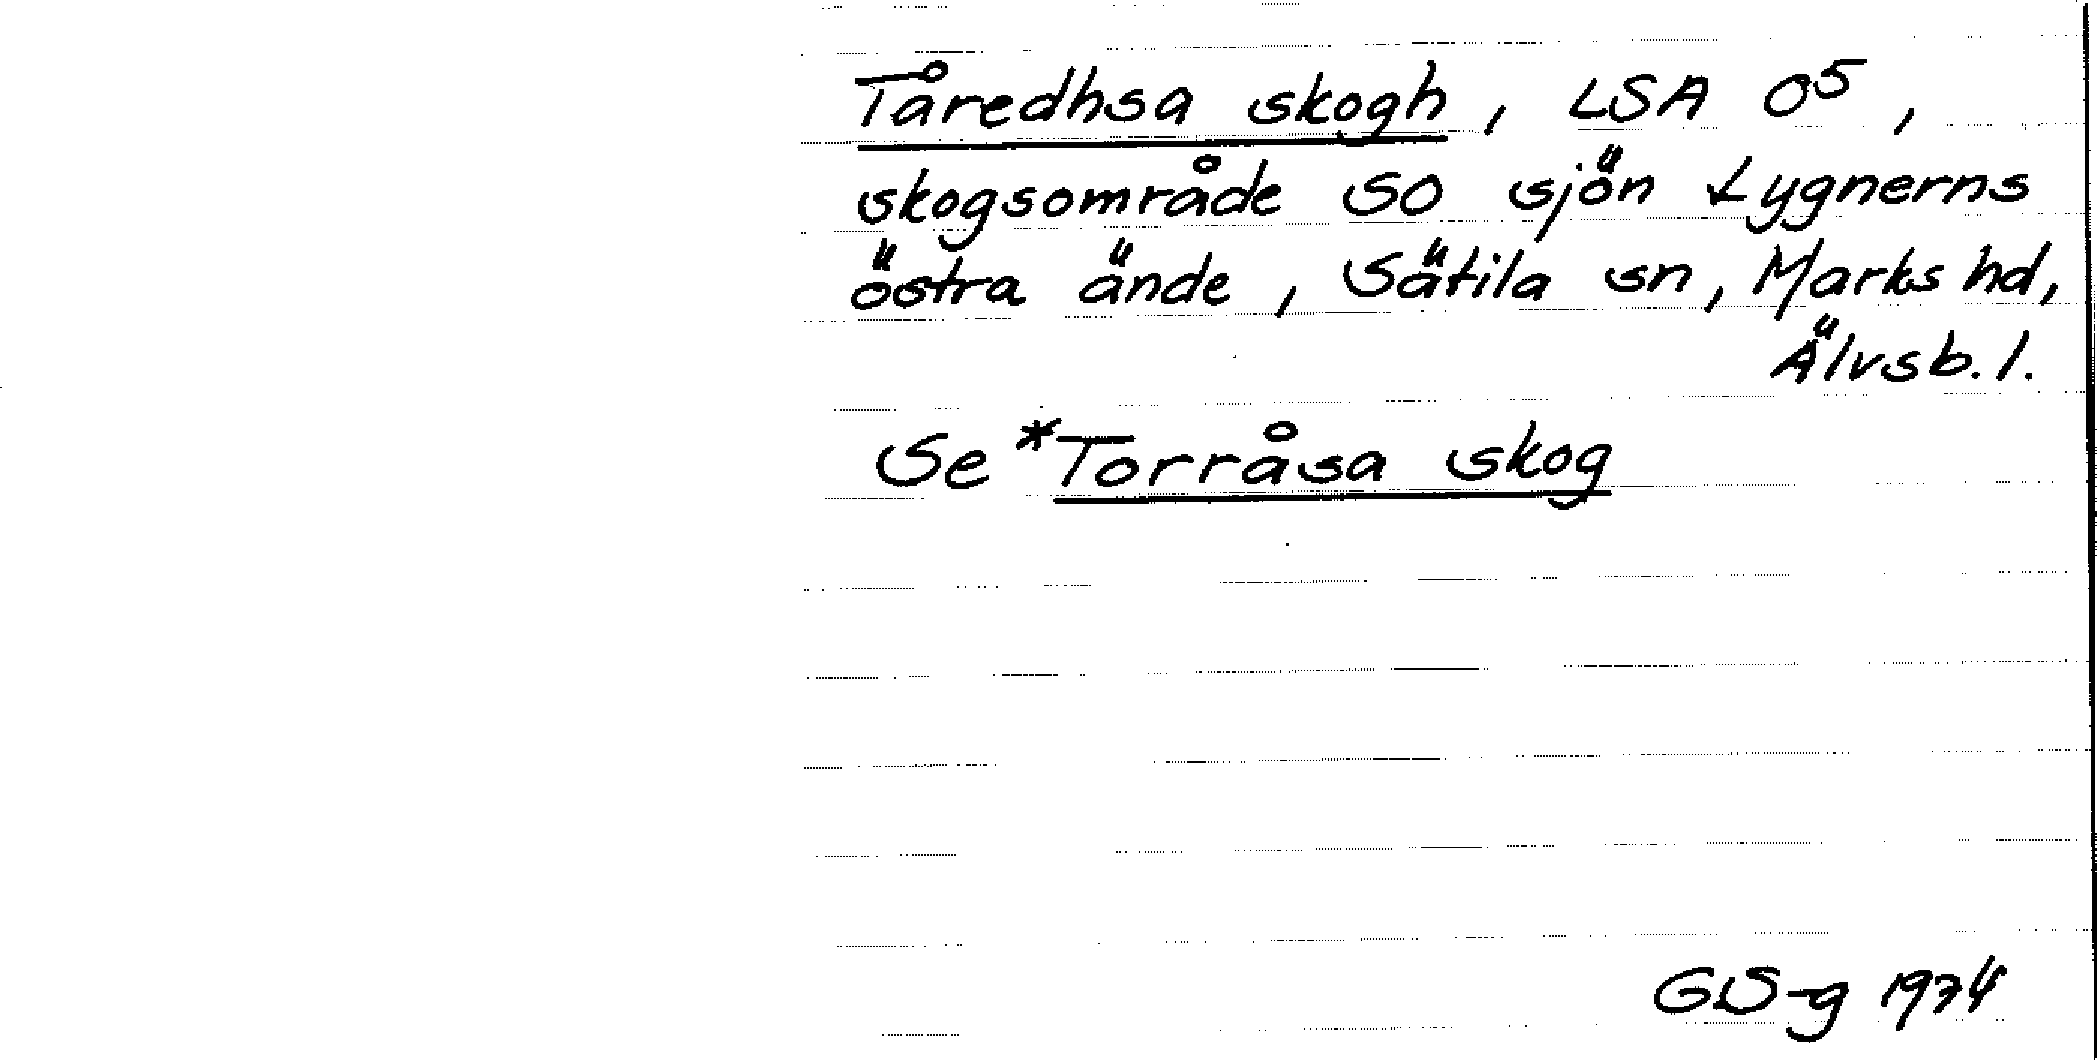 Tåredhsa skogh, LSA O5,
skogsområde SO sjön Lygnerns
östra ände, Sätila sn, Marks hd,
Älvsb. l.
Se *Torråsa skog
GS-g 1974